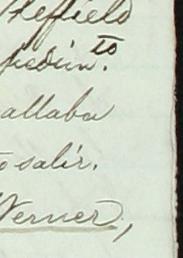 Sheffield
pedim.to
allaba
o salir.
Werner,